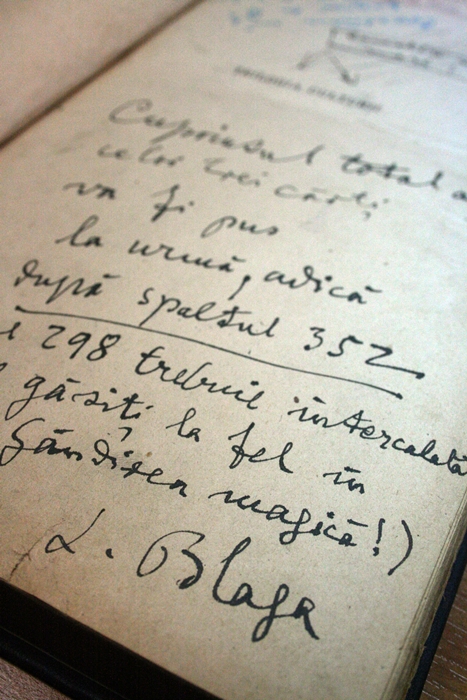 Cuprinsul total a
celor trei cărți
va fi pus
la urmă, adică
după spaltul 352
298 trebuie intercalată
găsiți la fel în
Gândirea magică!)
L. Blaga